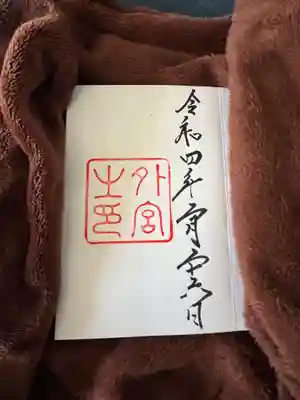 令和四年二月二十六日
外宮
之印